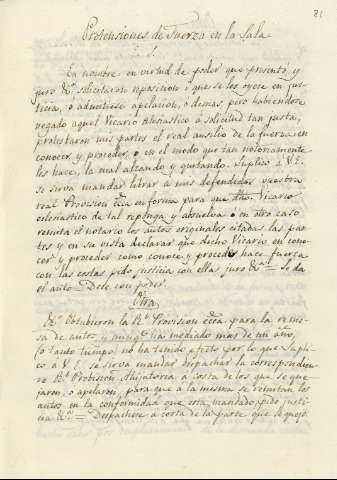 81
Pretensiones de Fuerza en la Sala
1.
En nombre en virtud de poder que presentó y
juro &c. solicitaron reposicion i que se les oyese en jus-
ticia, o admitiese apelacion, o demas pero habiendose
negado aquel Vicario eclesiastico a solicitud tan justa,
protestaron mis partes el real ausilio de la fuerza en
conocer, y proceder, o en el modo que tan notoriamente
les hace, la mal alzando y quitando. Suplico a V.E.
se sirva mandar librar a mis defendidos vuestra
real Provision en forma para que dho. Vicario
eclesiastico de tal reponga y absuelva o en otro caso
remita el notario los autos originales citadas las par-
tes y en su vista declarar que dicho Vicario en cono-
cer y proceder como conoce y procede hace fuerza
con las costas pido justicia con ellas juro &c. = Se da
el auto = Dele con poder.
Otra
&c. Obtubieron la Rl. Provision para la remi-
sa de autos y aunque ha mediado mas de un año,
(o tanto tiempo) no ha tenido efecto por lo que Supli-
co a V.E. se sirva mandar despachar la correspondien-
te Rl. Probision a costa de los que se que
jaron, o apelaron, para que a la misma se remitan los
autos en la conformidad que está mandado, pido justi-
cia &c. = Despachese a costa de la parte que se quejó.